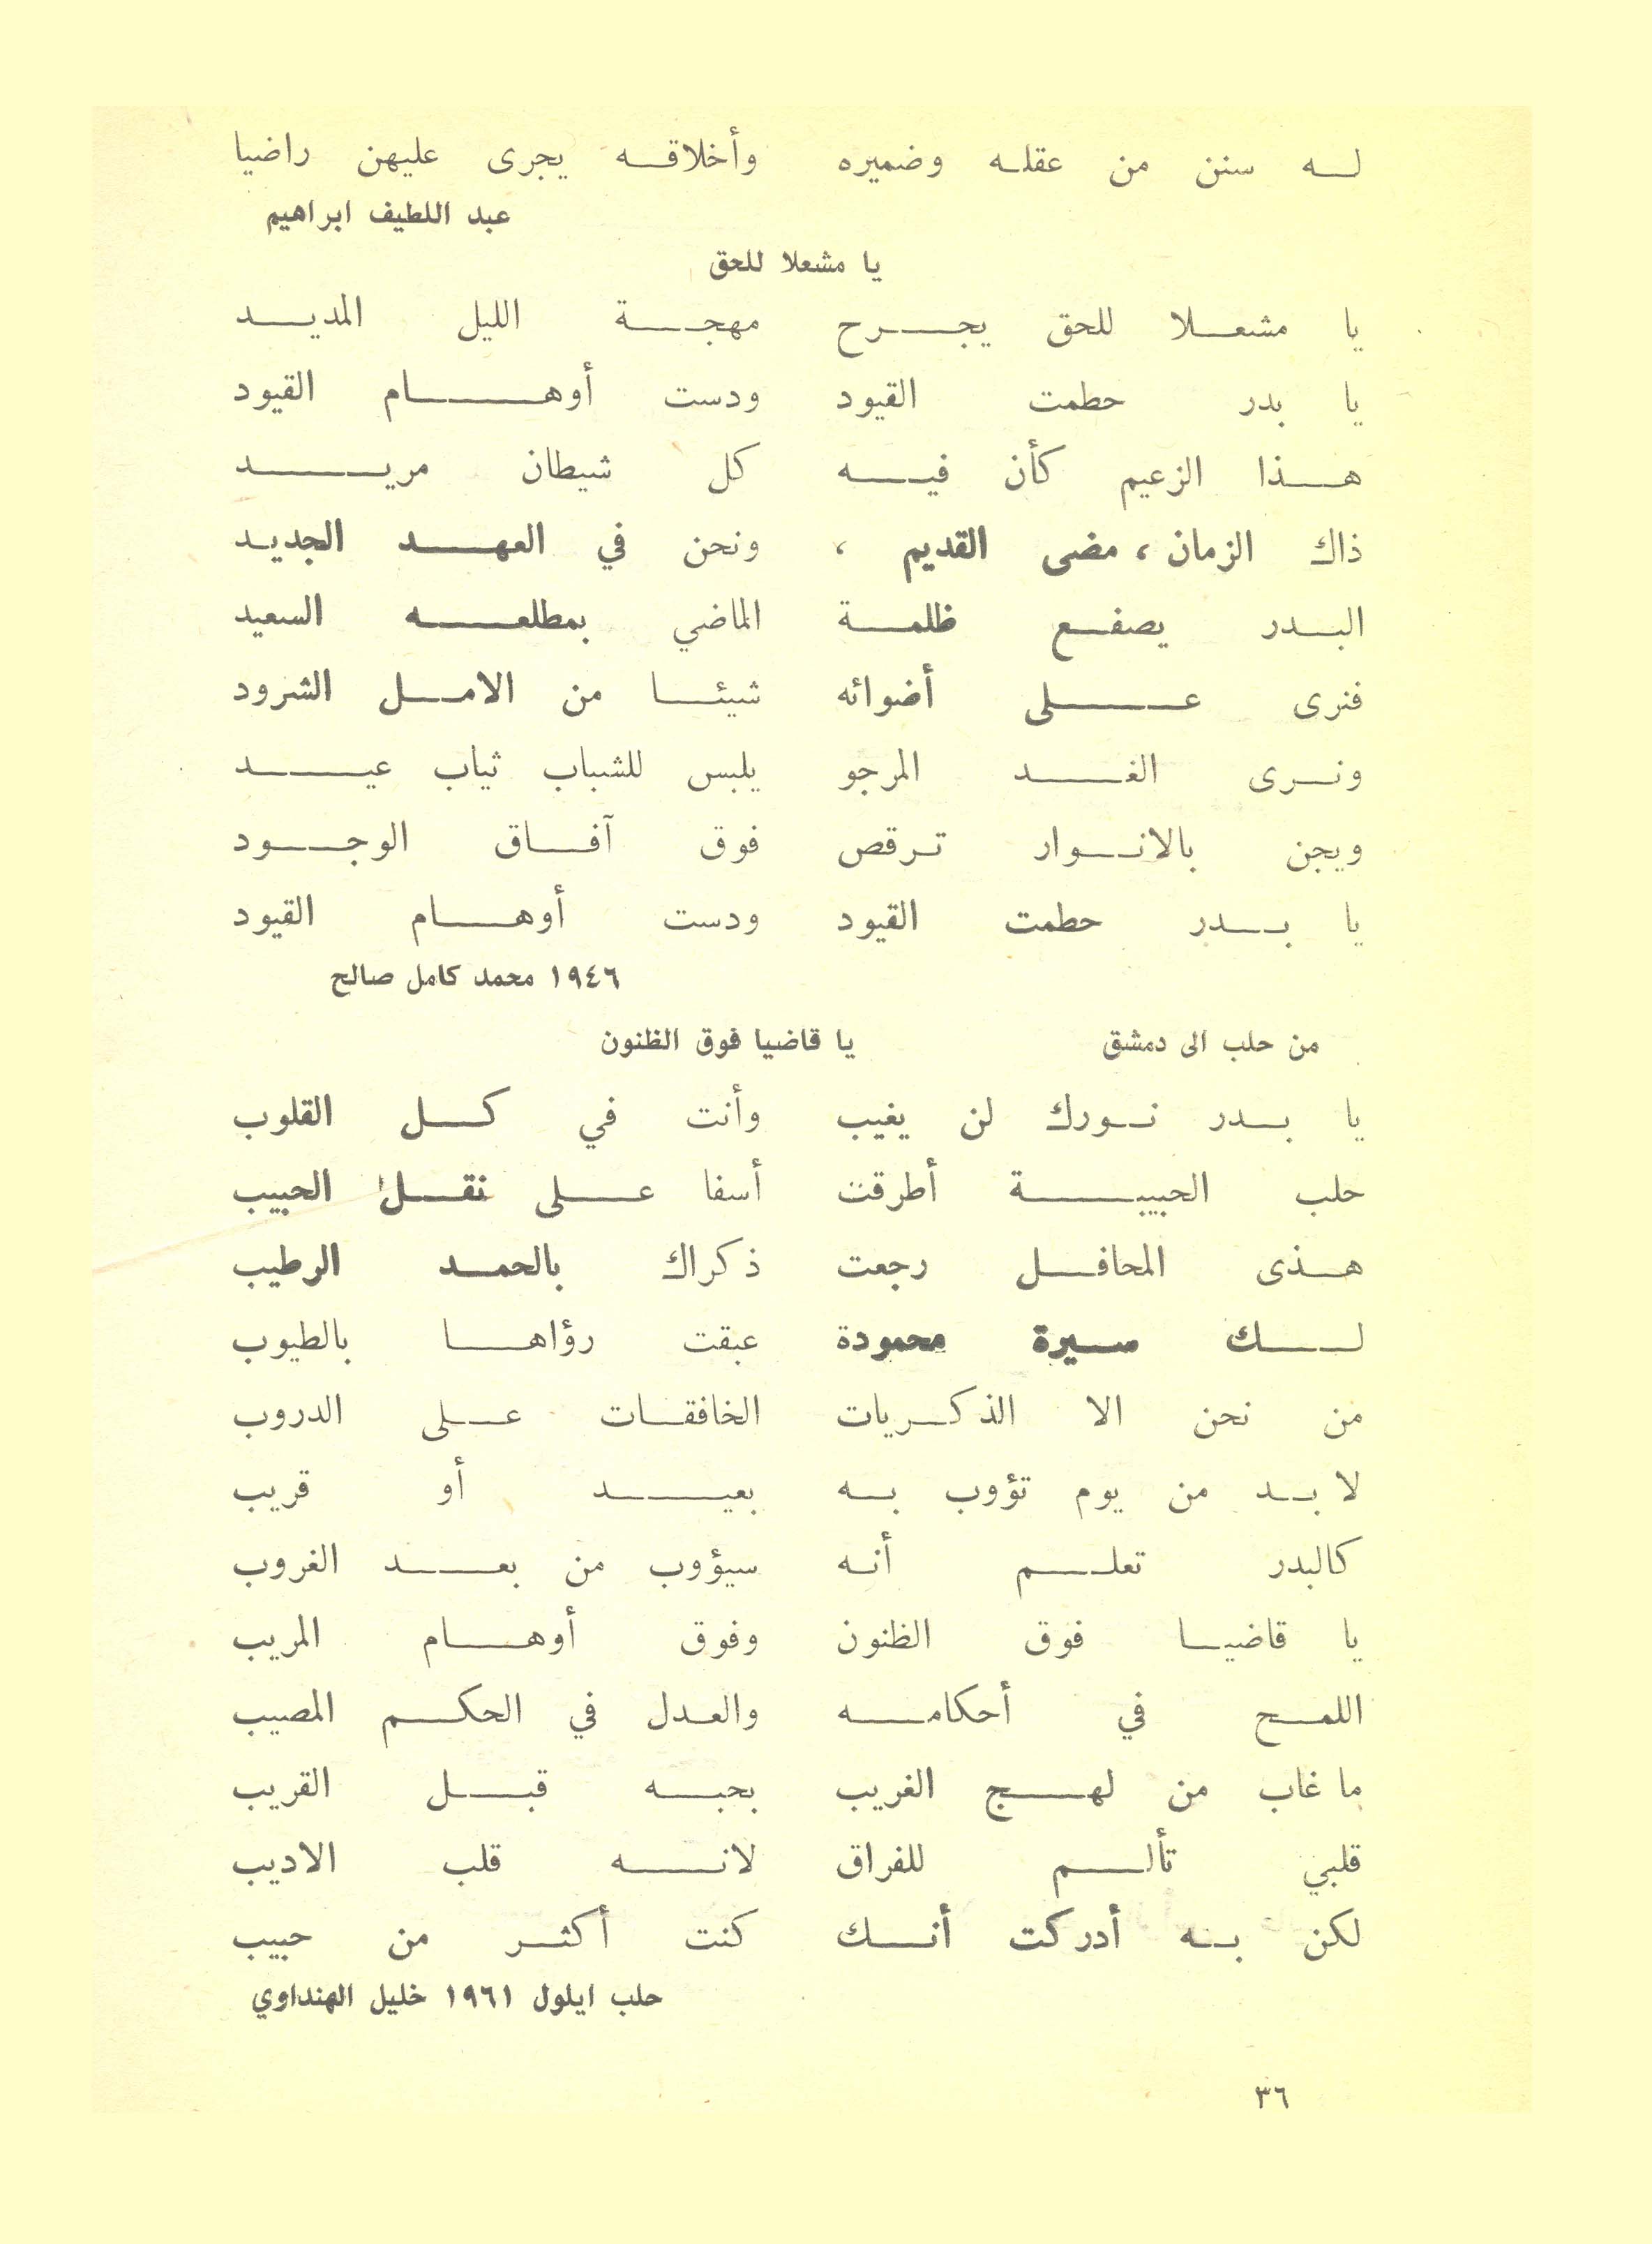 له سنن من عقله وضميره وأخلاقه يجرى عليهن راضيا
عبد اللطيف ابراهيم
يا مشعلا للحق
يا مشعلا للحق يجرح مهجة الليل المديد
يا بدر حطمت القيود ودست أوهام القيود
هذا الزعيم كأن فيه كل شيطان مريد
ذاك الزمان ، مضى القديم ، ونحن في العهد الجديد
البدر يصفع ظلمة الماضي بمطلعه السعيد
فنرى على أضوائه شيئا من الامل الشرود
ونرى الغد المرجو يلبس للشباب ثياب عيد
ويجن بالانوار ترقص فوق آفاق الوجود
يا بدر حطمت القيود ودست أوهام القيود
١٩٤٦ محمد كامل صالح
من حلب الى دمشق يا قاضيا فوق الظنون
يا بدر نورك لن يغيب وأنت في كل القلوب
حلب الحبيبة أطرقت أسفا على نقل الحبيب
هذى المحافل رجعت ذكراك بالحمد الرطيب
لك سيرة محمودة عبقت رؤاها بالطيوب
من نحن الا الذكريات الخافقات على الدروب
لا بد من يوم تؤوب به بعيد أو قريب
كالبدر تعلم أنه سيؤوب من بعد الغروب
يا قاضيا فوق الظنون وفوق أوهام المريب
اللمح في أحكامه والعدل في الحكم المصيب
ما غاب من لهج الغريب بحبه قبل القريب
قلبي تألم للفراق لانه قلب الاديب
لكن به أدركت أنك كنت أكثر من حبيب
حلب ايلول ١٩٦١ خليل الهنداوي
٣٦